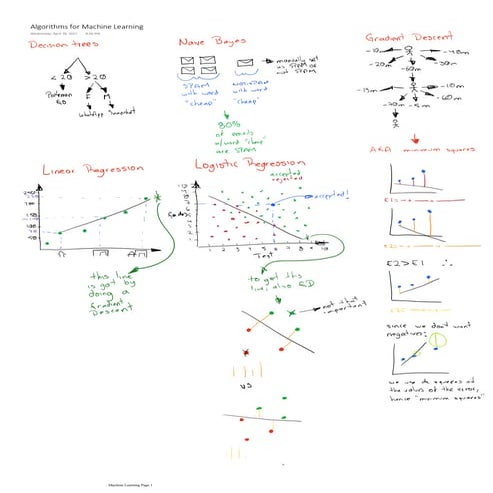 Algorithms for Machine Learning
Decision trees
< 20
> 20
F
M
WhatsApp
Naive Bayes
manually set
as SPAM or
not SPAM
SPAM
with word
"cheap"
with word
"cheap"
80%
of emails
w/word "cheap"
are SPAM
Gradient Descent
-10m
-20m
-60m
-30m
-10m
-60m
-5m
-20m
AKA minimum squares
E2>E1 ∴
since we don't want
negatives:
we use the squares of
the values of the error,
hence "minimum squares"
Linear Regression
this line
is got by
doing a
Gradient
Descent
Logistic Regression
accepted
rejected
accepted!
Test
to get this
line, also GD
not that
important
VS
Machine Learning Page 1